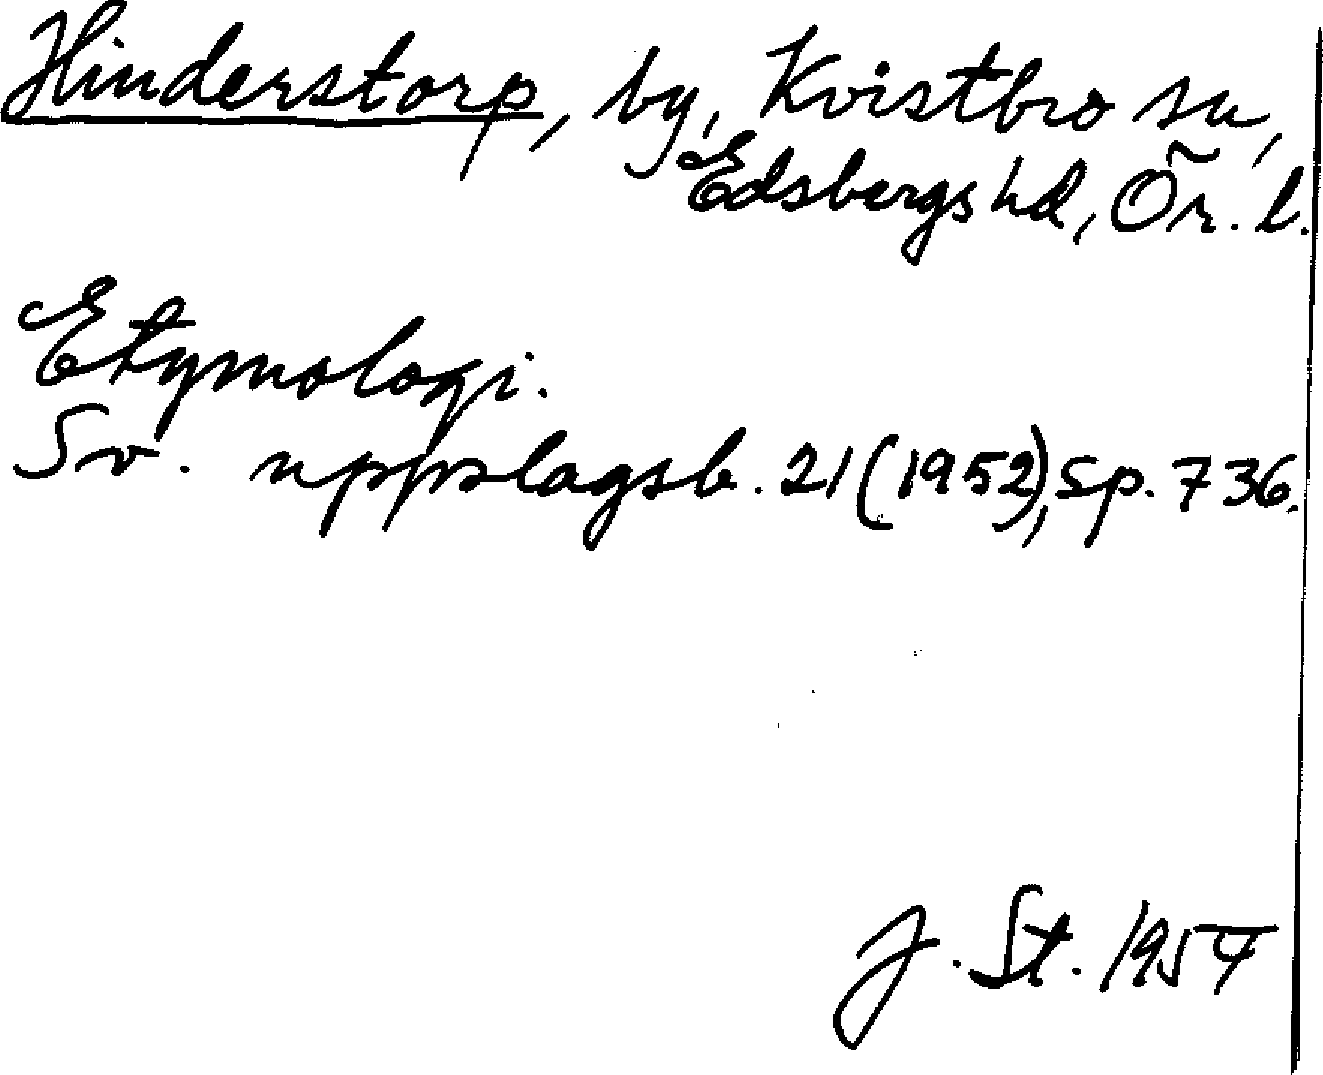 Hinderstorp, by, Kvistbro sn,
Edsbergs hd, Ör. l.
Etymologi.
Sv. uppslagsb. 21 (1952), sp. 736.
J. St. 1954